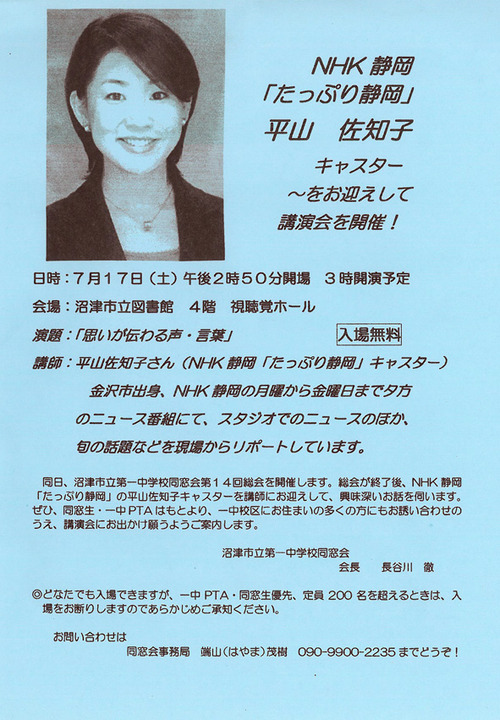 NHK 静岡
「たっぷり静岡」
平山　佐知子
キャスター
～をお迎えして
講演会を開催！
日時：７月１７日（土）午後２時５０分開場　３時開演予定
会場：沼津市立図書館　４階　視聴覚ホール
演題：「思いが伝わる声・言葉」　入場無料
講師：平山佐知子さん（NHK 静岡「たっぷり静岡」キャスター）
金沢市出身、NHK 静岡の月曜から金曜日まで夕方
のニュース番組にて、スタジオでのニュースのほか、
旬の話題などを現場からリポートしています。
同日、沼津市立第一中学校同窓会第１４回総会を開催します。総会が終了後、NHK 静岡
「たっぷり静岡」の平山佐知子キャスターを講師にお迎えして、興味深いお話を伺います。
ぜひ、同窓生・一中 PTA はもとより、一中校区にお住まいの多くの方にもお誘い合わせの
うえ、講演会にお出かけ願うようご案内します。
沼津市立第一中学校同窓会
会長　長谷川　徹
◎どなたでも入場できますが、一中 PTA・同窓生優先、定員 200 名を超えるときは、入
場をお断りしますのであらかじめご承知ください。
お問い合わせは
同窓会事務局　端山（はやま）茂樹　090-9900-2235 までどうぞ！